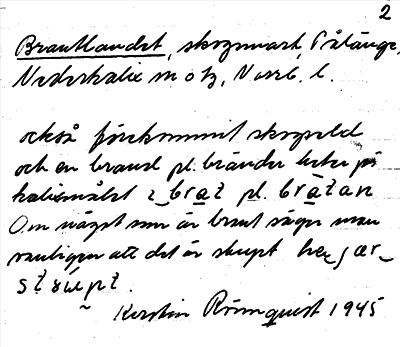 2
Brantlandet, skogsmark, Pålänge,
Nederkalix sn o tg, Norrb. l.
också förekommit skogseld
och en brand pl. bränder heter på
kalixmålet brat pl. bratan
Om något som är brant säger man
vanligen att det är stupt he jær
stupt.
Kerstin Rönnquist 1945